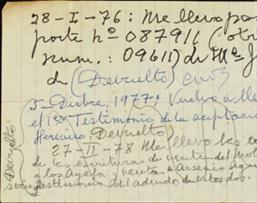 28-I-76: Me llevo pasa
porte nº 087911 (otro
num.: 09611) de Mª J
da (Devuelto)
5-Octubre 1977: Vuelvo a lle
el 1er Testimonio de la aceptació
Herencia Devuelto)
27-II-78 Me llevo las co
de las escrituras de venta del Mol
a los y venta a Arsenio
testimonio del de estos dos.
Devuelto